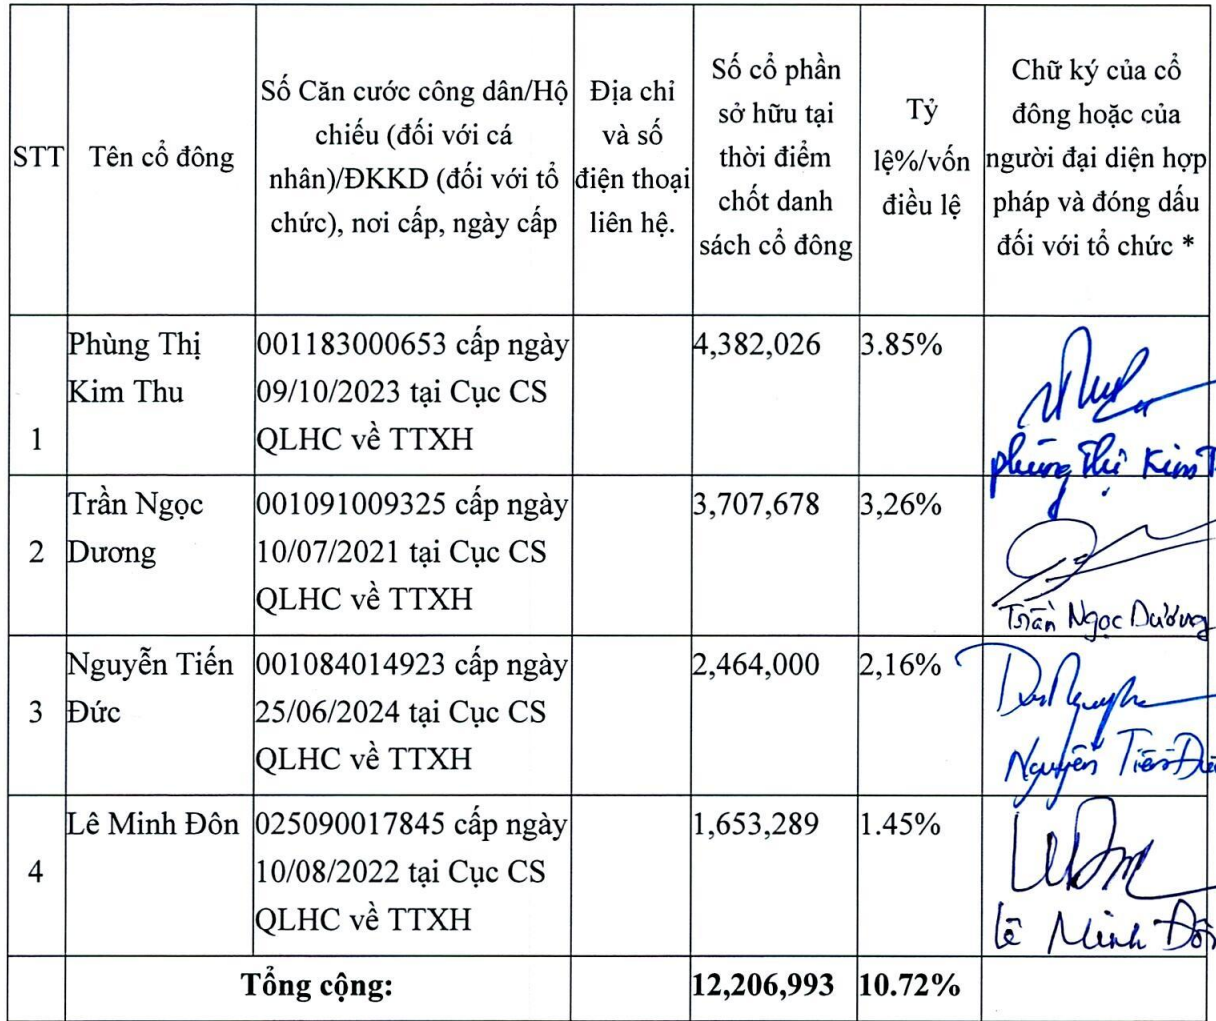 STT
Tên cổ đông
Số Căn cước công dân/Hộ
chiếu (đối với cá
nhân)/ĐKKD (đối với tổ
chức), nơi cấp, ngày cấp
Địa chỉ
và số
điện thoại
liên hệ.
Số cổ phần
sở hữu tại
thời điểm
chốt danh
sách cổ đông
Tỷ
lệ%/vốn
điều lệ
Chữ ký của cổ
đông hoặc của
người đại diện hợp
pháp và đóng dấu
đối với tổ chức *
1
Phùng Thị
Kim Thu
001183000653 cấp ngày
09/10/2023 tại Cục CS
QLHC về TTXH
4,382,026
3.85%
Phùng Thị Kim T
2
Trần Ngọc
Dương
001091009325 cấp ngày
10/07/2021 tại Cục CS
QLHC về TTXH
3,707,678
3,26%
Trần Ngọc Dương
3
Nguyễn Tiến
Đức
001084014923 cấp ngày
25/06/2024 tại Cục CS
QLHC về TTXH
2,464,000
2,16%
Nguyễn Tiến Đứ
4
Lê Minh Đôn
025090017845 cấp ngày
10/08/2022 tại Cục CS
QLHC về TTXH
1,653,289
1.45%
Lê Minh Đôn
Tổng cộng:
12,206,993
10.72%